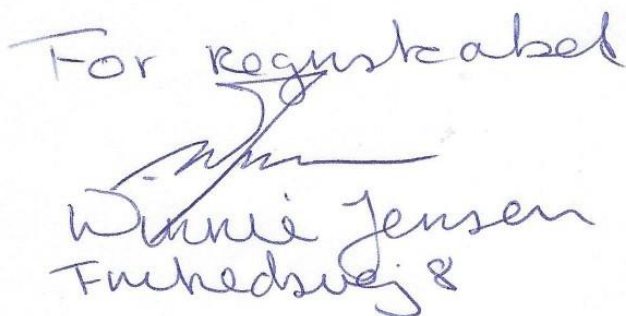 For regnskabet
Winnie Jensen
Frihedsvej 8